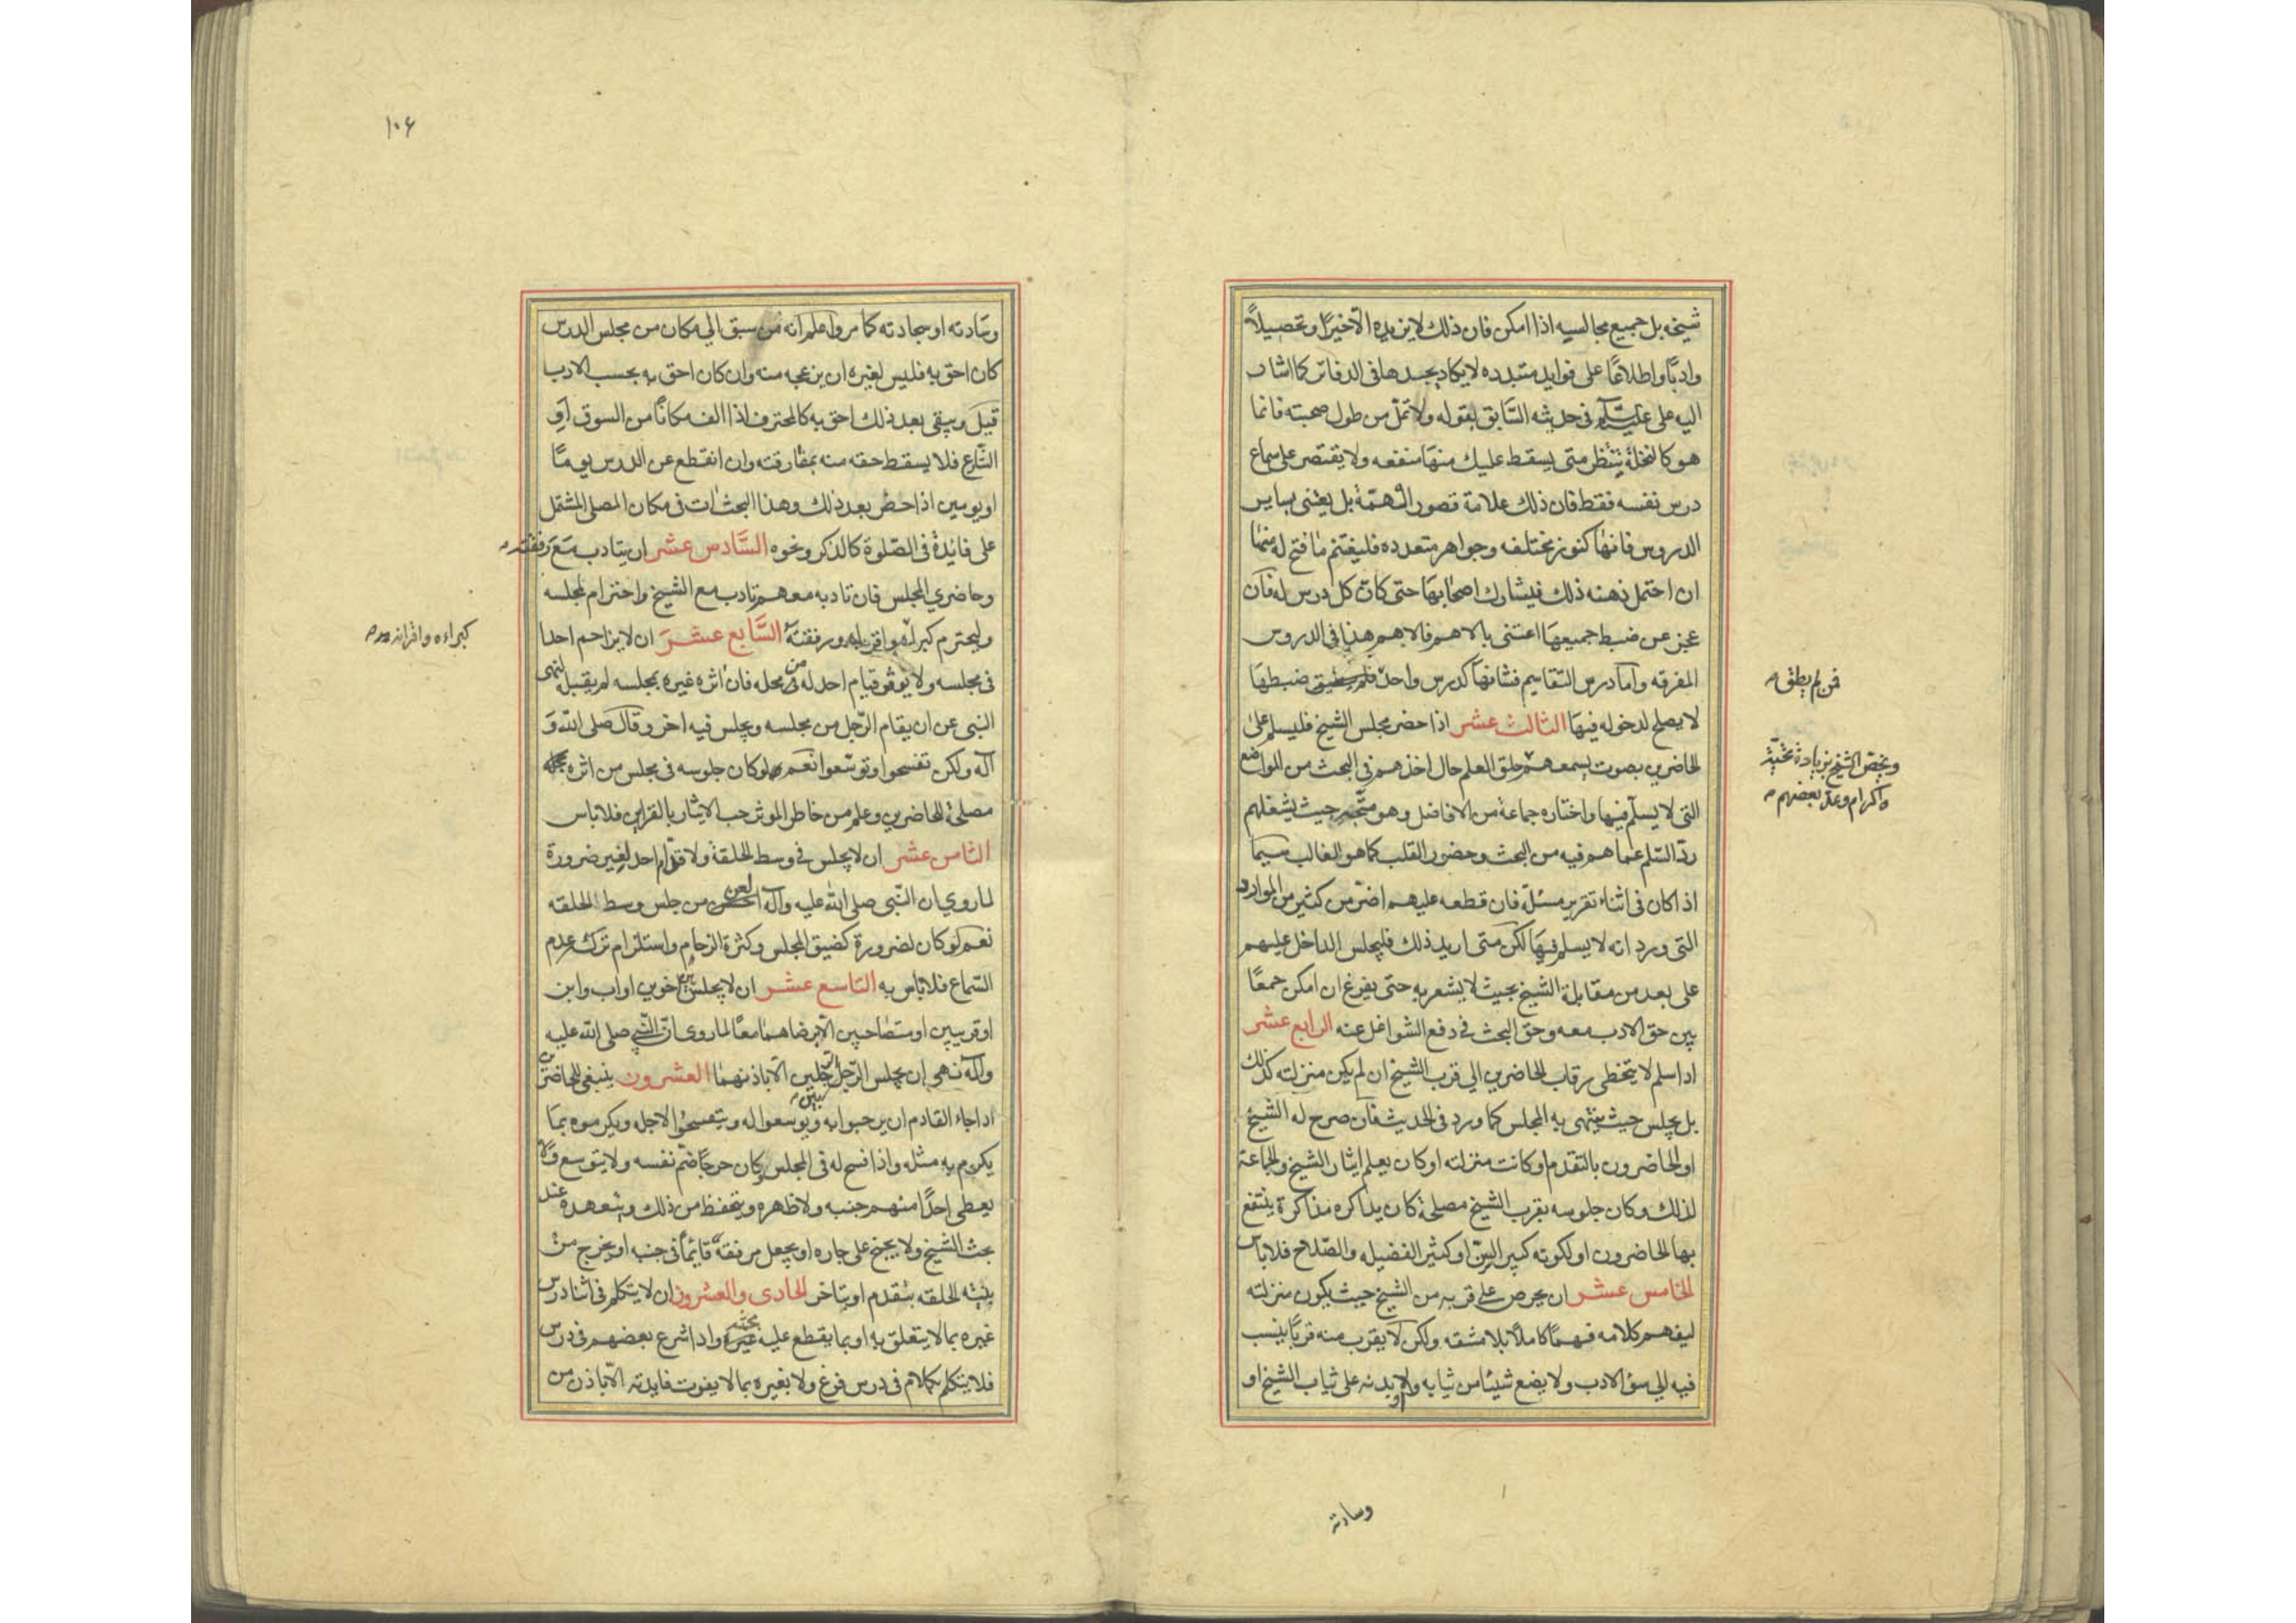 شيخه بل جميع مجالسيه اذا امكن فان ذلك لا يزيده الّا خيراً وتحصيلاً
وادبًا واطلاعًا على فوايد متبدده لا يكاد يجدها في الدفاتر كما اشار
اليه على عليه السلام في حديثه السّابق بقوله ولا تملّ من طول صحبته فانما
هو كالنخلة ينتظر متى يسقط عليك منها منفعه ولا يقتصر على سماع
درس نفسه فقط فان ذلك علامة قصور الهمّة بل يعتنى بساير
الدروس فانها كنوز مختلفه وجواهر متعدده فليغتنم ما فتح له منها
ان احتمل ذهنه ذلك فيشارك اصحابها حتى كان كل درس له فان
عجز عن ضبط جميعها اعتنى بالاهم فالاهم هذا في الدروس
المفرقه وامّا درس التقاسيم فشانها كدرس واحد ضبطها
فمن لم يطق
لا يصلح لدخوله فيها الثالث عشر اذا حضر مجلس الشيخ فليسلم على
الحاضرين بصوت يسمعهم حلق العلم حال اخذهم في البحث من المواضع
ويخصّ الشيخ بزيادة تحيّة
واكرام وعدّ بعضهم
التى لا يسلّم فيها واختاره جماعة من الافاضل وهو متّجه حيث يشغلهم
ردّ السّلم عما هم فيه من البحث وحضور القلب كما هو الغالب سيما
اذا كان في اثناء تقرير مسئلة فان قطعه عليهم اضرّ من كثير من الموارد
التى ورد انه لا يسلم فيها لكن متى اريد ذلك فليجلس الداخل عليهم
على بعد من مقابلة الشيخ بحيث لا يشعر به حتى يفرغ ان امكن جمعًا
بين حق الادب معه وحق البحث في دفع الشواغل عنه الرابع عشر
اذا سلم لا يتخطى رقاب الحاضرين الي قرب الشيخ ان لم يكن منزلته كذلك
بل يجلس حيث ينتهى به المجلس كما ورد في الحديث فان صرح له الشيخ
او الحاضرون بالتقدم او كانت منزلته او كان يعلم ايثار الشيخ والجماعة
لذلك وكان جلوسه بقرب الشيخ مصلحة كان يذاكره مذاكرة ينتفع
بها الحاضرون او لكونه كبير السنّ او كثير الفضيله والصّلاح فلا باس
الخامس عشر ان يحرص على قربه من الشيخ حيث يكون منزلته
ليفهم كلامه فهمًا كاملًا بلا مشقه ولكن لا يقرب منه قربًا ينسب
فيه الي سؤ الادب ولا يضع شيئا من ثيابه او بدنه على ثياب الشيخ او
وسادته
١٠۶
وسّادته او سجادته كما مر واعلم انه من سبق الي مكان من مجلس الدرس
كان احق به فليس لغيره ان يزعجه منه وان كان احق به بحسب الادب
قيل ويبقى بعد ذلك احق به كالمحترف اذا الف مكانًا من السوق او
الشّارع فلا يسقط حقه منه بمفارقته وان انقطع عن الدرس يومًا
او يومين اذا حضر بعد ذلك وهذا البحث ات في مكان المصلى المشتمل
على فائدة في الصّلوة كالذكر ونحوه السّادس عشر ان يتادب مع رفقته
وحاضري المجلس فان تادبه معهم تادب مع الشيخ واحترام لمجلسه
وليحترم ورفقته السّابع عشر ان لا يزاحم احدا
كبراءه واقرانه
في مجلسه ولا يوثر قيام احد له من محله فان اثره غيره بمجلسه لم يقبل لنهى
النبى عن ان يقام الرّجل من مجلسه ويجلس فيه اخر وقال صلى الله و
آله ولكن تفسحوا وتوسّعوا نعم لو كان جلوسه في مجلس من اثره
مصلحة للحاضرين وعلم من خاطر الموثر حب الايثار بالقراين فلا باس
الثامن عشر ان لا يجلس في وسط الحلقة ولا قدّام احد لغير ضرورة
لما روي ان النّبى صلى الله عليه وآله لعن من جلس وسط الحلقه
نعم لو كان لضرورة كضيق المجلس وكثرة الزحام واستلزام تركه عدم
السّماع فلا باس به التاسع عشر ان لا يجلس بين اخوين او اب وابن
او قريبين او متصاحبين الّا برضاهما معًا لما روى انّ النّبى صلى الله عليه
وآله نهى ان يجلس الرّجل بين الرجلين الّا باذنهما العشرون ينبغى للحاضرين
اذا جاء القادم ان يرحبوا به ويوسعوا له ويتفسحوا لاجله ويكرموه بما
يكرم به مثله واذا فسح له في المجلس وكان حرجًا ضمّ نفسه ولا يتوسع ولا
يعطى احدًا منهم جنبه ولا ظهره ويتحفظ من ذلك ويتعهده عند
بحث الشيخ ولا يجنح على جاره او يجعل مرفقه قايمًا في جنبه او يخرج من
بنيّة الحلقه بتقدم او بتاخر الحادى والعشرون ان لا يتكلم في اثنا درس
غيره بما لا يتعلق به او بما يقطع عليه بحثه واذا شرع بعضهم في درس
فلا يتكلم بكلام في درس فرغ ولا بغيره بما لا يفوت فايدته الّا باذن من